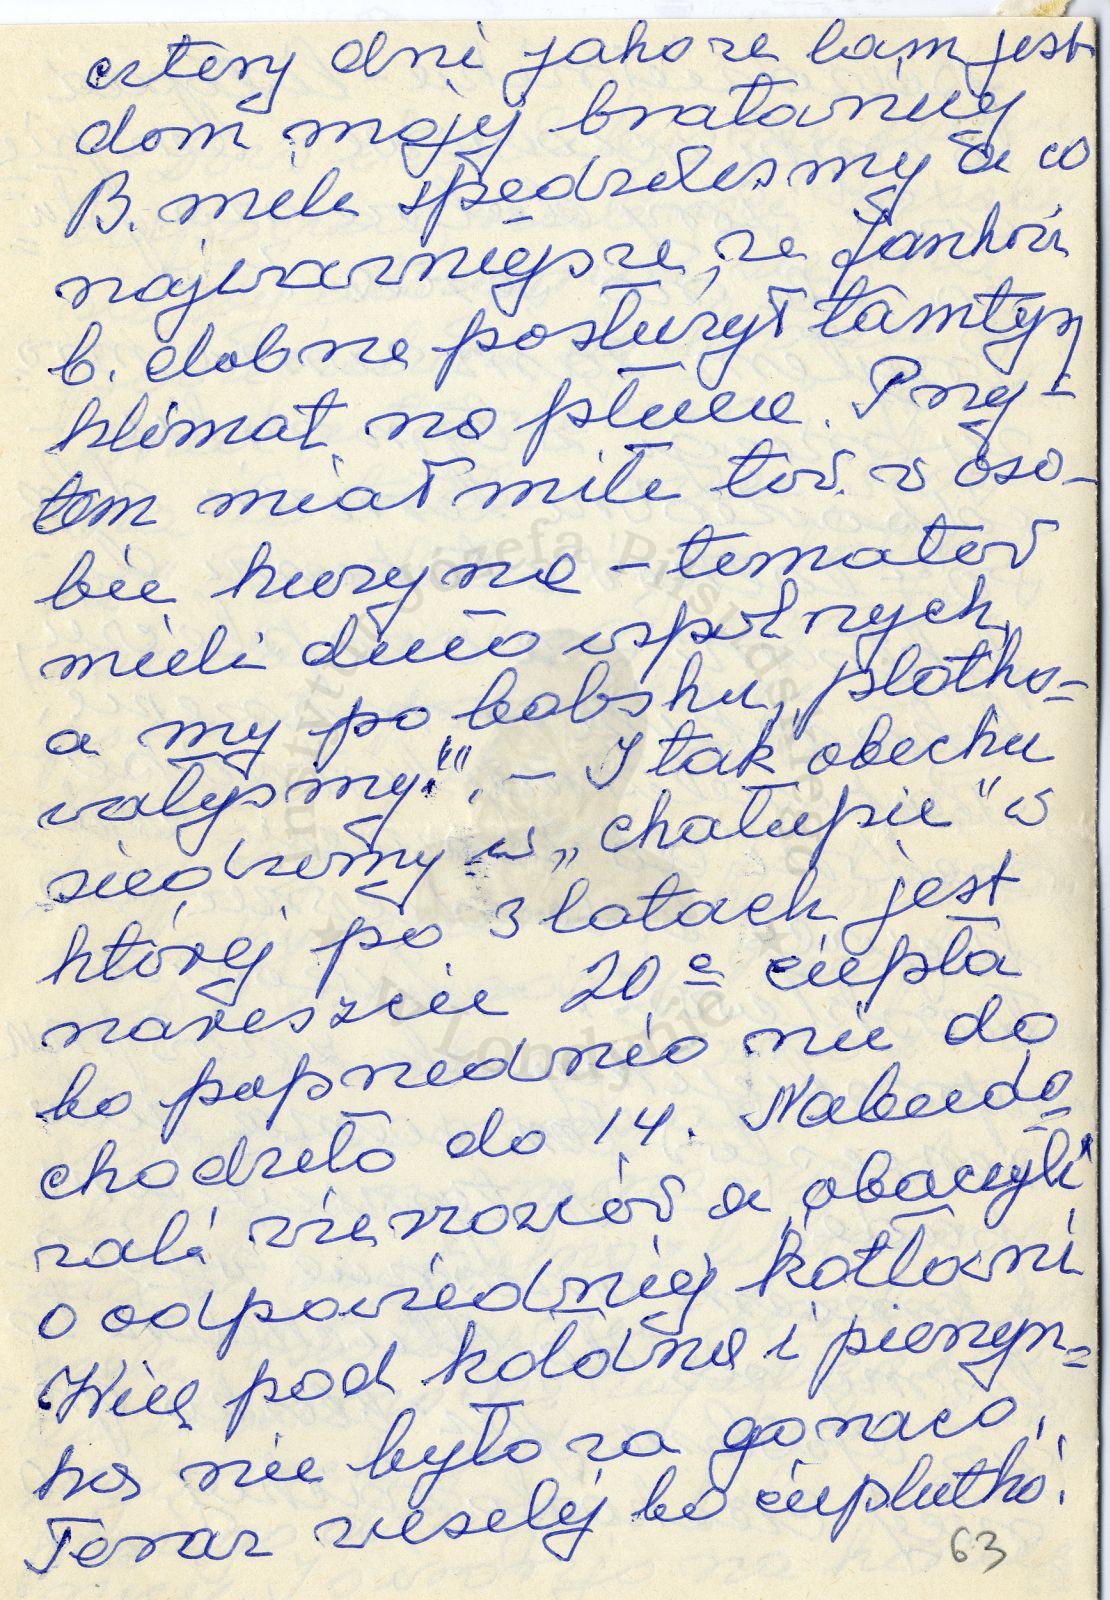 cztery dni jako że tam jest
dom mojej bratanicy
B. mile spędziliśmy a co
najważniejsze, że Jankowi
b. dobrze posłużył tamtyn
klimat na płuca. Przy-
tem miał miłe tow. w oso-
bie kuzyna – tematów
mieli dużo wspólnych,
a my po babsku „plotko-
wałyśmy". – I tak obecnie
siedzimy w „chałupie" w
której po 3 latach jest
nareszcie 20° ciepła
bo poprzednio nie do
chodziło do 14. Nabudo
wali wieżowców a, obaczyli
o odpowiedniej kotłowni
Więc pod kołdrą i pierzyn=
ką nie było za gorąco,
Teraz weselej bo cieplutko!
63
Instytut Józefa Piłsudskiego
w Londynie